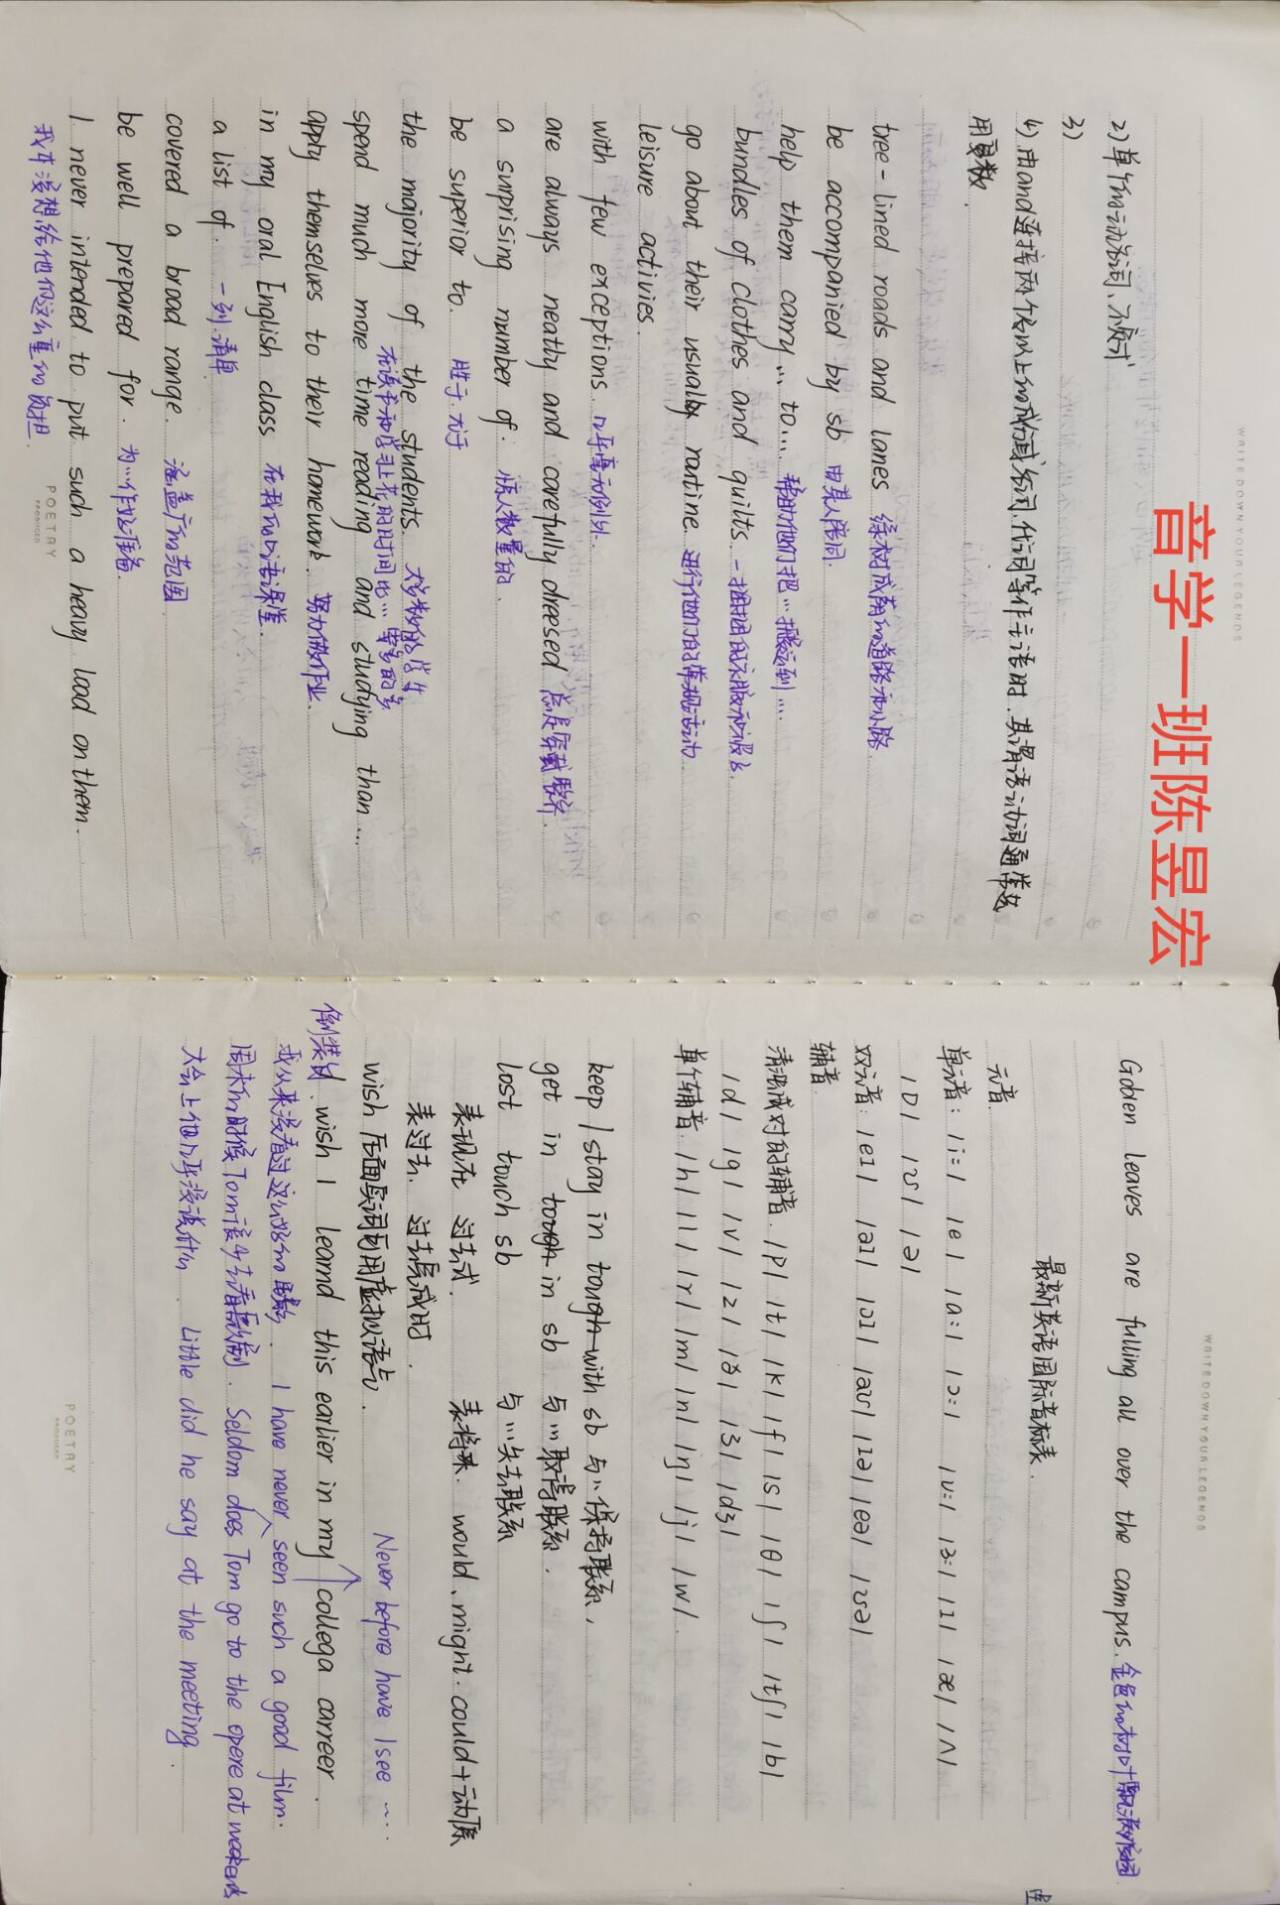 WRITE DOWN YOUR LEGENDS
音学一班陈昱宏
2) 单个的动名词、不定式
3)
4) 由and连接两个或以上的成份或名词、代词等作主语时，其谓语动词通常
用复数.
tree-lined roads and lanes 绿树成荫的道路和小路
be accompanied by sb 由某人陪同.
help them carry... to... 帮助他们把...搬运到...
bundles of clothes and quilts. 一捆捆的衣服和被子.
go about their usual routine. 进行他们的常规活动
leisure activies.
with few exceptions. 几乎毫无例外.
are always neathy and carefully dreesed 总是穿戴整齐.
a surprising number of. 惊人数量的.
be superior to. 胜于.尤于
the majority of the students. 大多数的学生
在读书和学习上花的时间比...要多的多
spend much more time reading and studying than...
appty themselves to their homework. 努力做作业.
in my oral English class 在我的口语课堂.
a list of. 一列.清单
covered a broad range. 涵盖广的范围
be well prepared for. 为...作好准备.
I never intended to put such a heavy load on them.
我本没想给他们这么重的负担.
POETRY
PRODUCER
WRITE DOWN YOUR LEGENDS
Golden leaves are fulling all over the campus. 金色的树叶飘满校园
最新英语国际音标表.
元音.
单元音: /i:/ /e/ /ɑ:/ /ɔ:/ /u:/ /ɜ:/ /ɪ/ /æ/ /ʌ/
/ɒ/ /ʊ/ /ə/
双元音: /eɪ/ /aɪ/ /ɔɪ/ /aʊ/ /ɪə/ /eə/ /ʊə/
辅音
清浊成对的辅音. /p/ /t/ /k/ /f/ /s/ /θ/ /ʃ/ /tʃ/ /b/
/d/ /g/ /v/ /z/ /ð/ /ʒ/ /dʒ/
单个辅音. /h/ /l/ /r/ /m/ /n/ /ŋ/ /j/ /w/.
keep/stay in tough with sb 与...保持联系,
get in tough in sb 与...取得联系.
lost touch sb 与...失去联系
表现在 过去式. 表将来. would. might. could+动原
表过去. 过去完成时.
wish 后面宾词可用虚拟语气. Never before have I see ....
倒装句. wish I learnd this earlier in my collega carreer.
我从来没看过这么好的电影. I have never seen such a good film.
周末的时候Tom很少去看歌剧. Seldom does Tom go to the opere at weekends
大会上他几乎没说什么. Little did he say at the meeting.
POETRY
PRODUCER